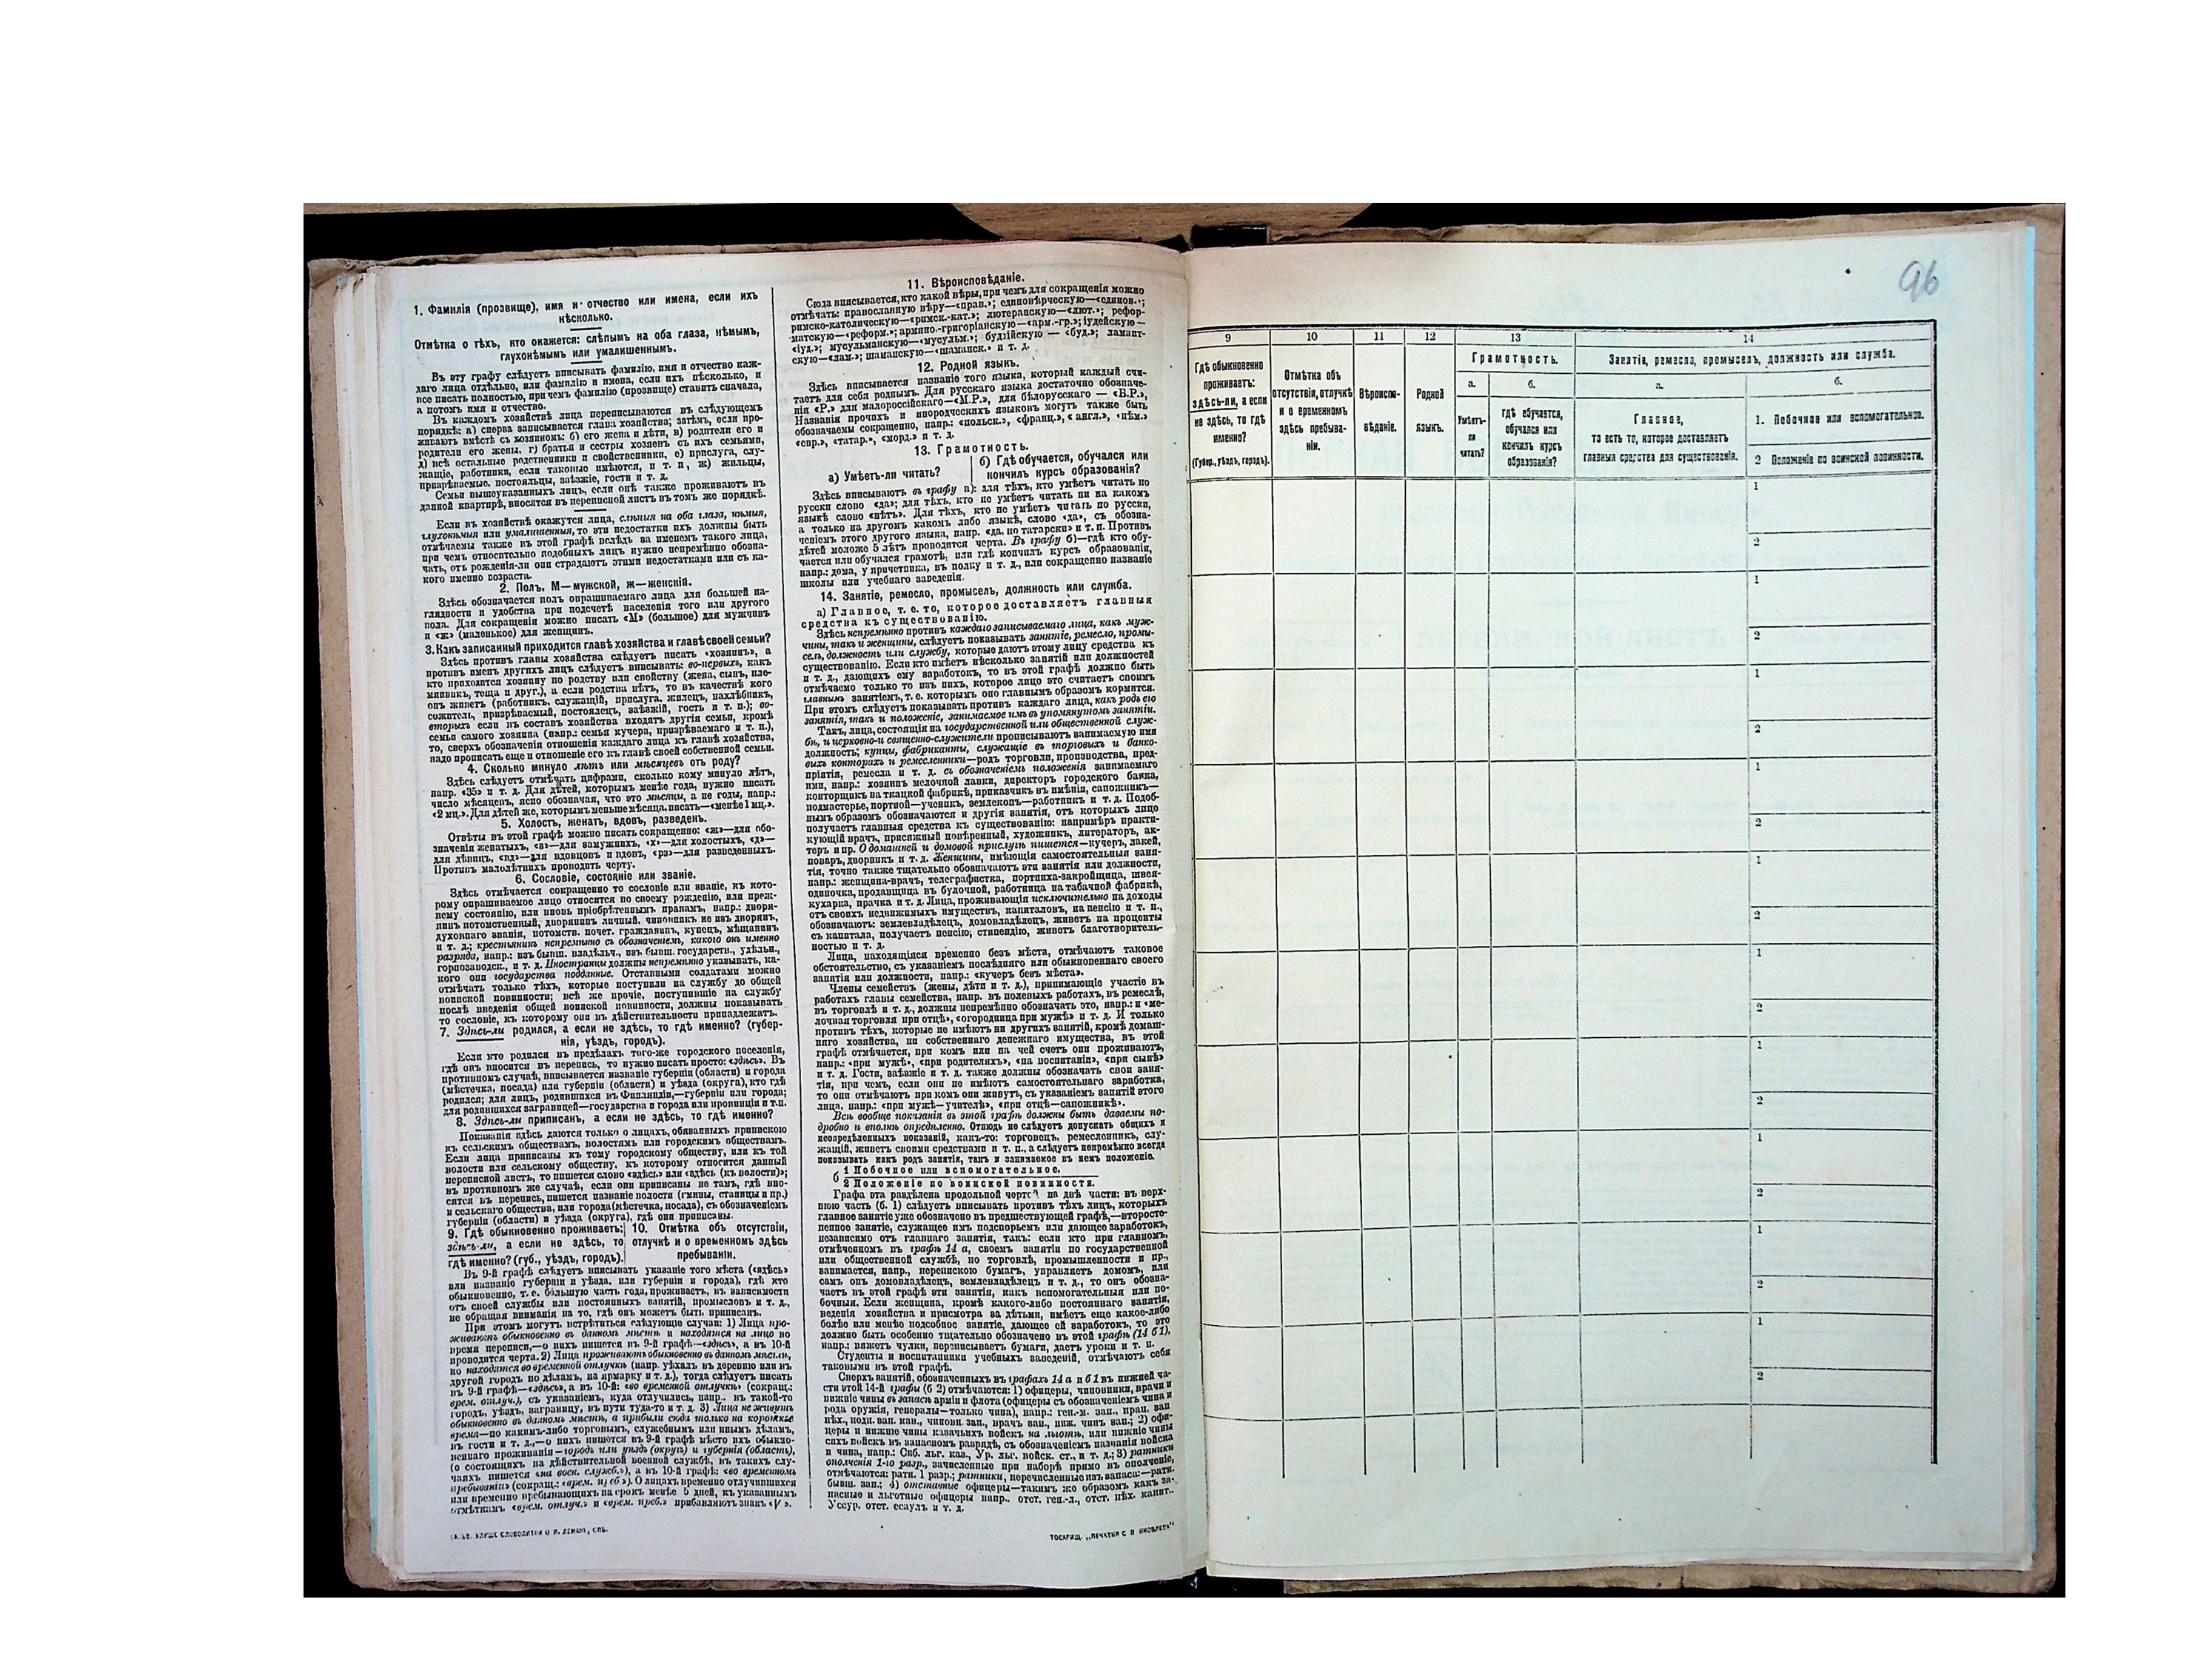 1. Фамилія (прозвище), имя и отчество или имена, если ихъ
нѣсколько.
Отмѣтка о тѣхъ, кто окажется: слѣпымъ на оба глаза, нѣмымъ,
глухонѣмымъ или умалишеннымъ.
Въ эту графу слѣдуетъ вписывать фамилію, имя и отчество каж-
даго лица отдѣльно, или фамилію и имена, если ихъ нѣсколько, и
все писать полностью, при чемъ фамилію (прозвище) ставить сначала,
а потомъ имя и отчество.
Въ каждомъ хозяйствѣ лица переписываются въ слѣдующемъ
порядкѣ: а) сперва записывается глава хозяйства; затѣмъ, если про-
живаютъ вмѣстѣ съ хозяиномъ: б) его жена и дѣти, в) родители его и
родители его жены, г) братья и сестры хозяевъ съ ихъ семьями,
д) всѣ остальные родственники и свойственники, е) прислуга, слу-
жащіе, работники, если таковые имѣются, и т. п., ж) жильцы,
призрѣваемые, постояльцы, заѣзжіе, гости и т. д.
Семьи вышеуказанныхъ лицъ, если онѣ также проживаютъ въ
данной квартирѣ, вносятся въ переписной листъ въ томъ же порядкѣ.
Если въ хозяйствѣ окажутся лица, слѣпыя на оба глаза, нѣмыя,
глухонѣмыя или умалишенныя, то эти недостатки ихъ должны быть
отмѣчаемы также въ этой графѣ вслѣдъ за именемъ такого лица,
при чемъ относительно подобныхъ лицъ нужно непремѣнно обозна-
чать, отъ рожденія-ли они страдаютъ этими недостатками или съ ка-
кого именно возраста.
2. Полъ, М—мужской, ж—женскій.
Здѣсь обозначается полъ опрашиваемаго лица для большей на-
глядности и удобства при подсчетѣ населенія того или другого
пола. Для сокращенія можно писать «М» (большое) для мужчинъ
и «ж» (маленькое) для женщинъ.
3. Какъ записанный приходится главѣ хозяйства и главѣ своей семьи?
Здѣсь противъ главы хозяйства слѣдуетъ писать «хозяинъ», а
противъ именъ другихъ лицъ слѣдуетъ вписывать: во-первыхъ, какъ
кто приходится хозяину по родству или свойству (жена, сынъ, пле-
мянникъ, теща и друг.), а если родства нѣтъ, то въ качествѣ кого
онъ живетъ (работникъ, служащій, прислуга, жилецъ, нахлѣбникъ,
сожитель, призрѣваемый, постоялецъ, заѣзжій, гость и т. п.); во-
вторыхъ если въ составъ хозяйства входятъ другія семьи, кромѣ
семьи самого хозяина (напр.: семья кучера, призрѣваемаго и т. п.),
то, сверхъ обозначенія отношенія каждаго лица къ главѣ хозяйства,
надо прописать еще и отношеніе его къ главѣ своей собственной семьи.
4. Сколько минуло лѣтъ или мѣсяцевъ отъ роду?
Здѣсь слѣдуетъ отмѣчать цифрами, сколько кому минуло лѣтъ,
напр. «35» и т. д. Для дѣтей, которымъ менѣе года, нужно писать
число мѣсяцевъ, ясно обозначая, что это мѣсяцы, а не годы, напр.:
«2 мц.». Для дѣтей же, которымъ меньше мѣсяца, писать—«менѣе 1 мц.».
5. Холостъ, женатъ, вдовъ, разведенъ.
Отвѣты въ этой графѣ можно писать сокращенно: «ж»—для обо-
значенія женатыхъ, «з»—для замужнихъ, «х»—для холостыхъ, «д»—
для дѣвицъ, «вд»—для вдовцовъ и вдовъ, «рз»—для разведенныхъ.
Противъ малолѣтнихъ проводить черту.
6. Сословіе, состояніе или званіе.
Здѣсь отмѣчается сокращенно то сословіе или званіе, къ кото-
рому опрашиваемое лицо относится по своему рожденію, или преж-
нему состоянію, или вновь пріобрѣтеннымъ правамъ, напр.: дворя-
нинъ потомственный, дворянинъ личный, чиновникъ не изъ дворянъ,
духовнаго званія, потомств. почет. гражданинъ, купецъ, мѣщанинъ
и т. д.; крестьянинъ непремѣнно съ обозначеніемъ, какого онъ именно
разряда, напр.: изъ бывш. владѣльч., изъ бывш. государств., удѣльн.,
горнозаводск., и т. д. Иностранцы должны непремѣнно указывать, ка-
кого они государства подданные. Отставными солдатами можно
отмѣчать только тѣхъ, которые поступили на службу до общей
воинской повинности; всѣ же прочіе, поступившіе на службу
послѣ введенія общей воинской повинности, должны показывать
то сословіе, къ которому они въ дѣйствительности принадлежатъ.
7. Здѣсь-ли родился, а если не здѣсь, то гдѣ именно? (губер-
нія, уѣздъ, городъ).
Если кто родился въ предѣлахъ того-же городского поселенія,
гдѣ онъ вносится въ перепись, то нужно писать просто: «здѣсь». Въ
противномъ случаѣ, вписывается названіе губерніи (области) и города
(мѣстечка, посада) или губерніи (области) и уѣзда (округа), кто гдѣ
родился; для лицъ, родившихся въ Финляндіи,—губерніи или города;
для родившихся заграницей—государства и города или провинціи и т.п.
8. Здѣсь-ли приписанъ, а если не здѣсь, то гдѣ именно?
Показанія здѣсь даются только о лицахъ, обязанныхъ припискою
къ сельскимъ обществамъ, волостямъ или городскимъ обществамъ.
Если лица приписаны къ тому городскому обществу, или къ той
волости или сельскому обществу, къ которому относится данный
переписной листъ, то пишется слово «здѣсь» или «здѣсь (къ волости)»;
въ противномъ же случаѣ, если они приписаны не тамъ, гдѣ вно-
сятся въ перепись, пишется названіе волости (гмины, станицы и пр.)
и сельскаго общества, или города (мѣстечка, посада), съ обозначеніемъ
губерніи (области) и уѣзда (округа), гдѣ они приписаны.
9. Гдѣ обыкновенно проживаетъ:
здѣсь-ли, а если не здѣсь, то
гдѣ именно? (губ., уѣздъ, городъ).
10. Отмѣтка объ отсутствіи,
отлучкѣ и о временномъ здѣсь
пребываніи.
Въ 9-й графѣ слѣдуетъ вписывать указаніе того мѣста («здѣсь»
или названіе губерніи и уѣзда, или губерніи и города), гдѣ кто
обыкновенно, т. е. большую часть года, проживаетъ, въ зависимости
отъ своей службы или постоянныхъ занятій, промысловъ и т. д.,
не обращая вниманія на то, гдѣ онъ можетъ быть приписанъ.
При этомъ могутъ встрѣтиться слѣдующіе случаи: 1) Лица про-
живаютъ обыкновенно въ данномъ мѣстѣ и находятся на лицо во
время переписи,—о нихъ пишется въ 9-й графѣ—«здѣсь», а въ 10-й
проводится черта. 2) Лица проживаютъ обыкновенно въ данномъ мѣстѣ,
но находятся во временной отлучкѣ (напр. уѣхалъ въ деревню или въ
другой городъ по дѣламъ, на ярмарку и т. д.), тогда слѣдуетъ писать
въ 9-й графѣ—«здѣсь», а въ 10-й: «во временной отлучкѣ» (сокращ.:
врем. отлуч.), съ указаніемъ, куда отлучились, напр. въ такой-то
городъ, уѣздъ, заграницу, въ пути туда-то и т. д. 3) Лица не живутъ
обыкновенно въ данномъ мѣстѣ, а прибыли сюда только на короткое
время—по какимъ-либо торговымъ, служебнымъ или инымъ дѣламъ,
въ гости и т. д.,—о нихъ пишется въ 9-й графѣ мѣсто ихъ обыкно-
веннаго проживанія—городъ или уѣздъ (округъ) и губернія (область),
(о состоящихъ на дѣйствительной военной службѣ, въ такихъ слу-
чаяхъ пишется «на воен. службѣ»), а въ 10-й графѣ: «во временномъ
пребываніи» (сокращ.: «врем. преб.»). О лицахъ временно отлучившихся
или временно пребывающихъ на срокъ менѣе 5 дней, къ указаннымъ
отмѣткамъ «врем. отлуч.» и «врем. преб.» прибавляютъ знакъ «V».
11. Вѣроисповѣданіе.
Сюда вписывается, кто какой вѣры, при чемъ для сокращенія можно
отмѣчать: православную вѣру—«прав.»; единовѣрческую—«единов.»;
римско-католическую—«римск.-кат.»; лютеранскую—«лют.»; рефор-
матскую—«реформ.»; армяно-григоріанскую—«арм.-гр.»; іудейскую—
«іуд.»; мусульманскую—«мусульм.»; будзійскую — «буд.»; ламаит-
скую—«лам.»; шаманскую—«шаманск.» и т. д.
12. Родной языкъ.
Здѣсь вписывается названіе того языка, который каждый счи-
таетъ для себя роднымъ. Для русскаго языка достаточно обозначе-
нія «Р.» для малороссійскаго—«М.Р.», для бѣлорусскаго — «В.Р.»,
Названія прочихъ и инородческихъ языковъ могутъ также быть
обозначаемы сокращенно, напр.: «польск.», «франц.», «англ.», «нѣм.»
«евр.», «татар.», «морд.» и т. д.
13. Грамотность.
а) Умѣетъ-ли читать?
б) Гдѣ обучается, обучался или
кончилъ курсъ образованія?
Здѣсь вписываютъ въ графу а): для тѣхъ, кто умѣетъ читать по
русски слово «да»; для тѣхъ, кто не умѣетъ читать ни на какомъ
языкѣ слово «нѣтъ». Для тѣхъ, кто не умѣетъ читать по русски,
а только на другомъ какомъ либо языкѣ, слово «да», съ обозна-
ченіемъ этого другого языка, напр. «да, по татарски» и т. п. Противъ
дѣтей моложе 5 лѣтъ проводится черта. Въ графу б)—гдѣ кто обу-
чается или обучался грамотѣ, или гдѣ кончилъ курсъ образованія,
напр.: дома, у причетника, въ полку и т. д., или сокращенно названіе
школы или учебнаго заведенія.
14. Занятіе, ремесло, промыселъ, должность или служба.
а) Главное, т. е. то, которое доставляетъ главныя
средства къ существованію.
Здѣсь непремѣнно противъ каждаго записываемаго лица, какъ муж-
чины, такъ и женщины, слѣдуетъ показывать занятіе, ремесло, промы-
селъ, должность или службу, которые даютъ этому лицу средства къ
существованію. Если кто имѣетъ нѣсколько занятій или должностей
и т. д., дающихъ ему заработокъ, то въ этой графѣ должно быть
отмѣчаемо только то изъ нихъ, которое лицо это считаетъ своимъ
главнымъ занятіемъ, т. е. которымъ оно главнымъ образомъ кормится.
При этомъ слѣдуетъ показывать противъ каждаго лица, какъ родъ его
занятія, такъ и положеніе, занимаемое имъ въ упомянутомъ занятіи.
Такъ, лица, состоящія на государственной или общественной служ-
бѣ, и церковно-и священно-служители прописываютъ занимаемую ими
должность; купцы, фабриканты, служащіе въ торговыхъ и банко-
выхъ конторахъ и ремесленники—родъ торговли, производства, пред-
пріятія, ремесла и т. д. съ обозначеніемъ положенія занимаемаго
ими, напр.: хозяинъ мелочной лавки, директоръ городского банка,
конторщикъ на ткацкой фабрикѣ, приказчикъ въ имѣніи, сапожникъ—
подмастерье, портной—ученикъ, землекопъ—работникъ и т. д. Подоб-
нымъ образомъ обозначаются и другія занятія, отъ которыхъ лицо
получаетъ главныя средства къ существованію: напримѣръ практи-
кующій врачъ, присяжный повѣренный, художникъ, литераторъ, ак-
теръ и пр. О домашней и домовой прислугѣ пишется—кучеръ, лакей,
поваръ, дворникъ и т. д. Женщины, имѣющія самостоятельныя заня-
тія, точно также тщательно обозначаютъ эти занятія или должности,
напр.: женщина-врачъ, телеграфистка, портниха-закройщица, швея-
одиночка, продавщица въ булочной, работница на табачной фабрикѣ,
кухарка, прачка и т. д. Лица, проживающія исключительно на доходы
отъ своихъ недвижимыхъ имуществъ, капиталовъ, на пенсію и т. п.,
обозначаютъ: землевладѣлецъ, домовладѣлецъ, живетъ на проценты
съ капитала, получаетъ пенсію, стипендію, живетъ благотворитель-
ностью и т. д.
Лица, находящіяся временно безъ мѣста, отмѣчаютъ таковое
обстоятельство, съ указаніемъ послѣдняго или обыкновеннаго своего
занятія или должности, напр.: «кучеръ безъ мѣста».
Члены семействъ (жены, дѣти и т. д.), принимающіе участіе въ
работахъ главы семейства, напр. въ полевыхъ работахъ, въ ремеслѣ,
въ торговлѣ и т. д., должны непремѣнно обозначать это, напр.: и «ме-
лочная торговля при отцѣ», «огородница при мужѣ» и т. д. И только
противъ тѣхъ, которые не имѣютъ ни другихъ занятій, кромѣ домаш-
няго хозяйства, ни собственнаго денежнаго имущества, въ этой
графѣ отмѣчается, при комъ или на чей счетъ они проживаютъ,
напр.: «при мужѣ», «при родителяхъ», «на воспитаніи», «при сынѣ»
и т. д. Гости, заѣзжіе и т. д. также должны обозначать свои заня-
тія, при чемъ, если они не имѣютъ самостоятельнаго заработка,
то они отмѣчаютъ при комъ они живутъ, съ указаніемъ занятій этого
лица, напр.: «при мужѣ—учителѣ», «при отцѣ—сапожникѣ».
Всѣ вообще показанія въ этой графѣ должны быть даваемы по-
дробно и вполнѣ опредѣленно. Отнюдь не слѣдуетъ допускать общихъ и
неопредѣленныхъ показаній, какъ-то: торговецъ, ремесленникъ, слу-
жащій, живетъ своими средствами и т. п., а слѣдуетъ непремѣнно всегда
показывать какъ родъ занятія, такъ и занимаемое въ немъ положеніе.
б
1 Побочное или вспомогательное.
2 Положеніе по воинской повинности.
Графа эта раздѣлена продольной чертой на двѣ части: въ верх-
нюю часть (б. 1) слѣдуетъ вписывать противъ тѣхъ лицъ, которыхъ
главное занятіе уже обозначено въ предшествующей графѣ,—второсте-
пенное занятіе, служащее имъ подспорьемъ или дающее заработокъ,
независимо отъ главнаго занятія, такъ: если кто при главномъ,
отмѣченномъ въ графѣ 14 а, своемъ занятіи по государственной
или общественной службѣ, по торговлѣ, промышленности и пр.,
занимается, напр., перепискою бумагъ, управляетъ домомъ, или
самъ онъ домовладѣлецъ, землевладѣлецъ и т. д., то онъ обозна-
чаетъ въ этой графѣ эти занятія, какъ вспомогательныя или по-
бочныя. Если женщина, кромѣ какого-либо постояннаго занятія,
веденія хозяйства и присмотра за дѣтьми, имѣетъ еще какое-либо
болѣе или менѣе подсобное занятіе, дающее ей заработокъ, то это
должно быть особенно тщательно обозначено въ этой графѣ (14 б 1),
напр.: вяжетъ чулки, переписываетъ бумаги, даетъ уроки и т. п.
Студенты и воспитанники учебныхъ заведеній, отмѣчаютъ себя
таковыми въ этой графѣ.
Сверхъ занятій, обозначенныхъ въ графахъ 14 а и б 1 въ нижней ча-
сти этой 14-й графы (б 2) отмѣчаются: 1) офицеры, чиновники, врачи и
нижніе чины въ запасѣ арміи и флота (офицеры съ обозначеніемъ чина и
рода оружія, генералы—только чина), напр.: ген.-м. зап., прап. зап.
пѣх., подп. зап. кав., чиновн. зап., врачъ зап., ниж. чинъ зап.; 2) офи-
церы и нижніе чины казачьихъ войскъ на льготѣ, или нижніе чины
сихъ войскъ въ запасномъ разрядѣ, съ обозначеніемъ названія войска
и чина, напр.: Спб. льг. каз., Ур. льг. войск. ст., и т. д.; 3) ратники
ополченія 1-го разр., зачисленные при наборѣ прямо въ ополченіе,
отмѣчаются: ратн. 1 разр.; ратники, перечисленные изъ запаса:—ратн.
бывш. зап.; 4) отставные офицеры—такимъ же образомъ какъ за-
пасные и льготные офицеры напр., отст. ген.-л., отст. пѣх. капит.,
Уссур. отст. есаулъ и т. д.
96
9
10
11
12
13
14
Гдѣ обыкновенно
проживаетъ:
здѣсь-ли, а если
не здѣсь, то гдѣ
именно?
(Губер., уѣздъ, городъ).
Отмѣтка объ
отсутствіи, отлучкѣ
и о временномъ
здѣсь пребыва-
ніи.
Вѣроиспо-
вѣданіе.
Родной
языкъ.
Грамотность.
а.
б.
Умѣетъ-
ли
читать?
гдѣ обучается,
обучался или
кончилъ курсъ
образованія?
Занятія, ремесло, промыселъ, должность или служба.
а.
б.
Главное,
то есть то, которое доставляетъ
главныя средства для существованія.
1. Побочное или вспомогательное.
2 Положеніе по воинской повинности.
1
2
1
2
1
2
1
2
1
2
1
2
1
2
1
2
1
2
1
2